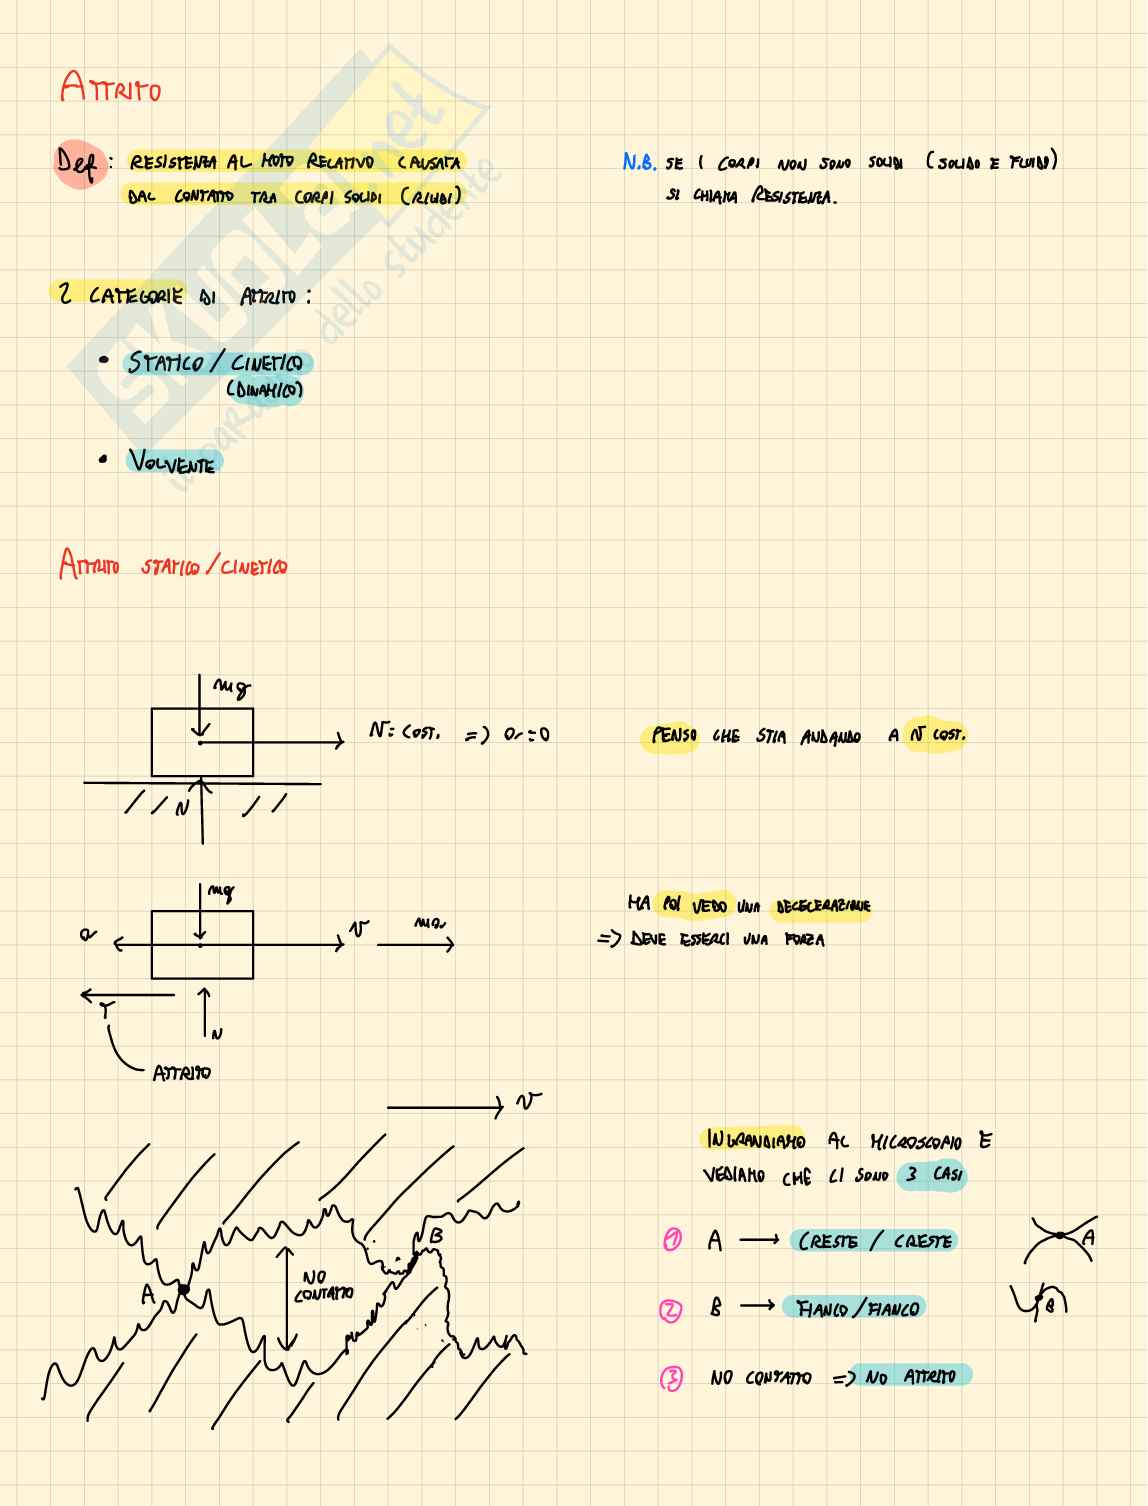 ATTRITO
Def: RESISTENZA AL MOTO RELATIVO CAUSATA
DAL CONTATTO TRA CORPI SOLIDI (RIGIDI)
N.B. SE I CORPI NON SONO SOLIDI (SOLIDO E FLUIDO)
SI CHIAMA RESISTENZA.
2 CATEGORIE DI ATTRITO:
• STATICO/CINETICO
(DINAMICO)
• VOLVENTE
ATTRITO STATICO/CINETICO
mg
v = COST. => a = 0
N
PENSO CHE STIA ANDANDO A v COST.
mg
a
v
ma
T
N
ATTRITO
MA POI VEDO UNA DECELERAZIONE
=> DEVE ESSERCI UNA FORZA
v
A
B
NO
CONTATTO
INGRANDIAMO AL MICROSCOPIO E
VEDIAMO CHE CI SONO 3 CASI
1 A → CRESTE/CRESTE
A
2 B → FIANCO/FIANCO
B
3 NO CONTATTO => NO ATTRITO
SKUOLA.net
dello studente